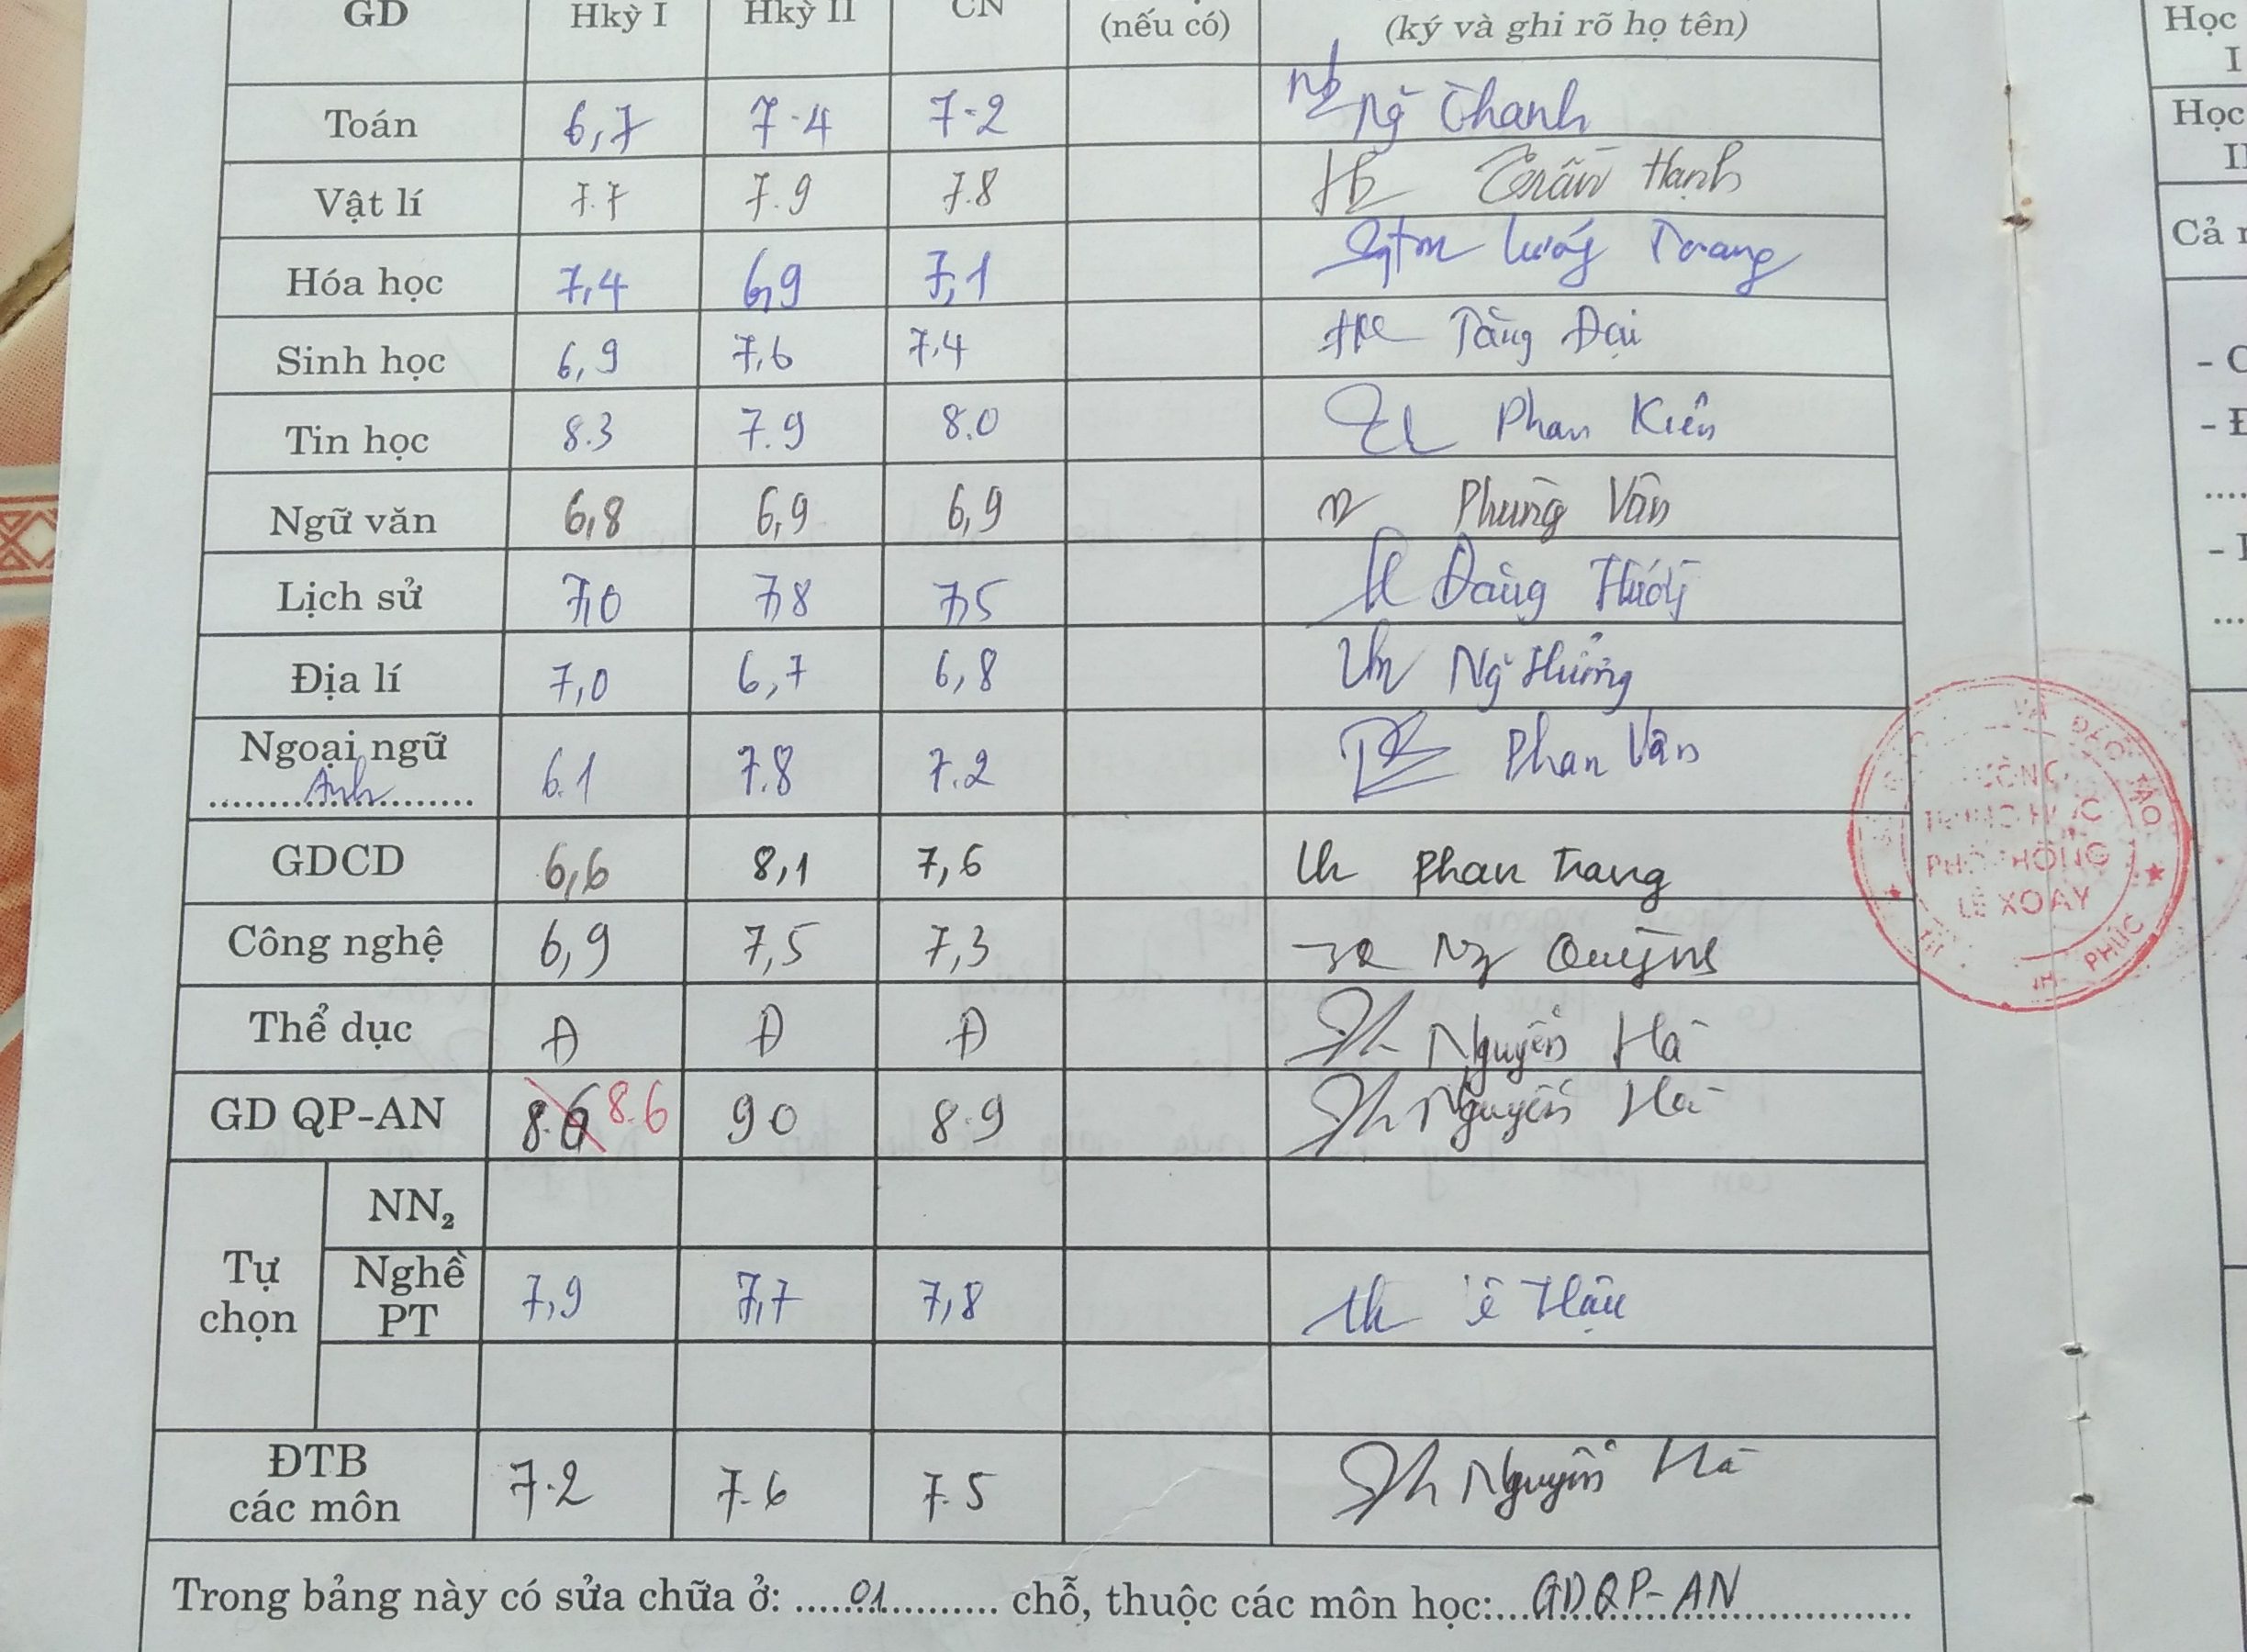 GD Hkỳ I Hkỳ II CN (nếu có) (ký và ghi rõ họ tên)
Toán 6,7 7.4 7.2 Ng Thanh
Vật lí 7.7 7.9 7.8 Trần Hạnh
Hóa học 7,4 6,9 7,1 Trang
Sinh học 6,9 7,6 7.4 Tăng Đại
Tin học 8.3 7.9 8.0 Phan Kiên
Ngữ văn 6,8 6,9 6,9 Phùng Vân
Lịch sử 7,0 7,8 7,5
Địa lí 7,0 6,7 6,8 Ng Hương
Ngoại ngữ
Anh 6.1 7.8 7.2 Phan Vân
GDCD 6,6 8,1 7,6 Phan Trang
Công nghệ 6,9 7,5 7,3 Quỳnh
Thể dục Đ Đ Đ Nguyễn Hà
GD QP-AN 8.6 8.6 9 0 8.9 Nguyễn Hà
Tự chọn
NN2
Nghề PT 7,9 7,7 7,8 Hậu
ĐTB
các môn 7.2 7.6 7.5 Nguyễn Hà
Trong bảng này có sửa chữa ở: .....01.......... chỗ, thuộc các môn học:...GDQP-AN..........
VÀ ĐÀO TẠO
PHỔ THÔNG
LÊ XOAY
PHÚC
Học
I
Học
II
Cả